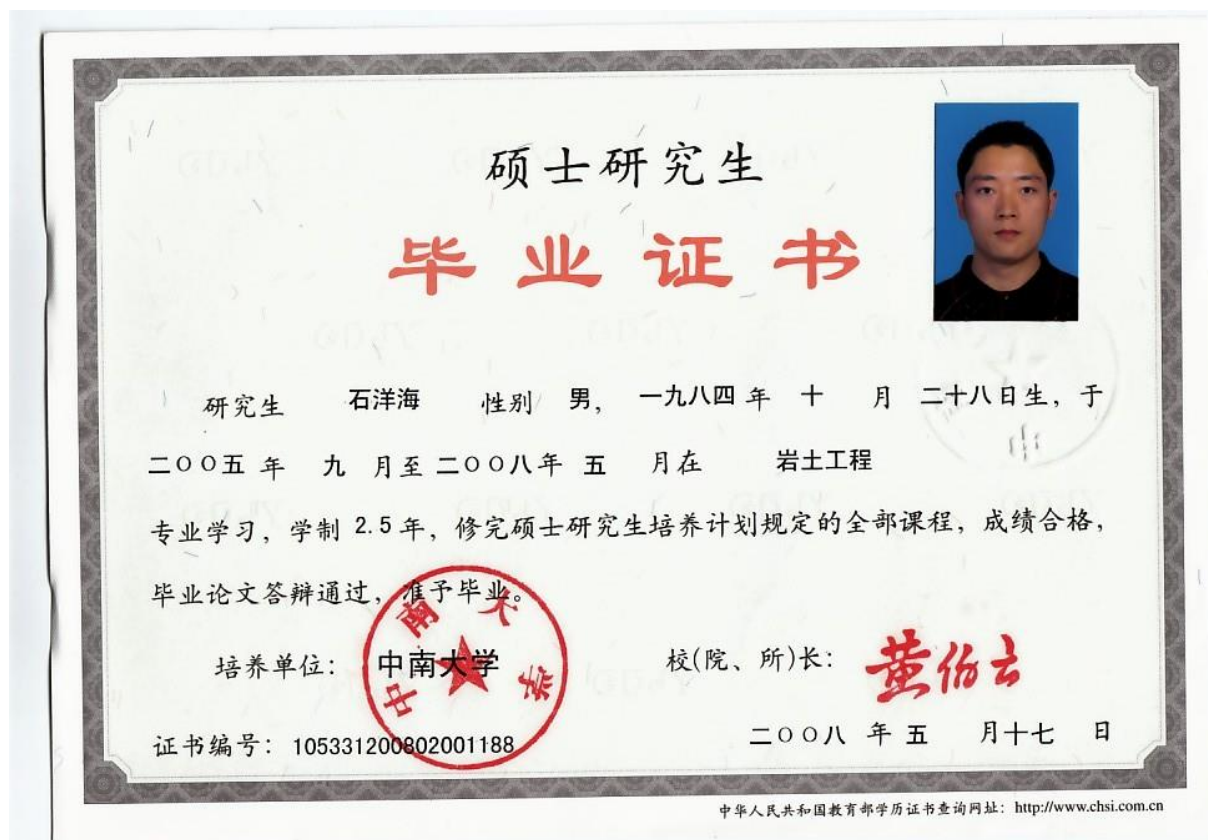 硕士研究生
毕业证书
研究生 石洋海 性别 男, 一九八四 年 十 月 二十八日生, 于
二〇〇五 年 九 月至 二〇〇八年 五 月在 岩土工程
专业学习, 学制 2.5 年, 修完硕士研究生培养计划规定的全部课程, 成绩合格,
毕业论文答辩通过, 准予毕业。
培养单位: 中南大学 校(院、所)长: 黄伯云
中南大学
证书编号: 105331200802001188 二〇〇八 年 五 月十七 日
中华人民共和国教育部学历证书查询网址: http://www.chsi.com.cn